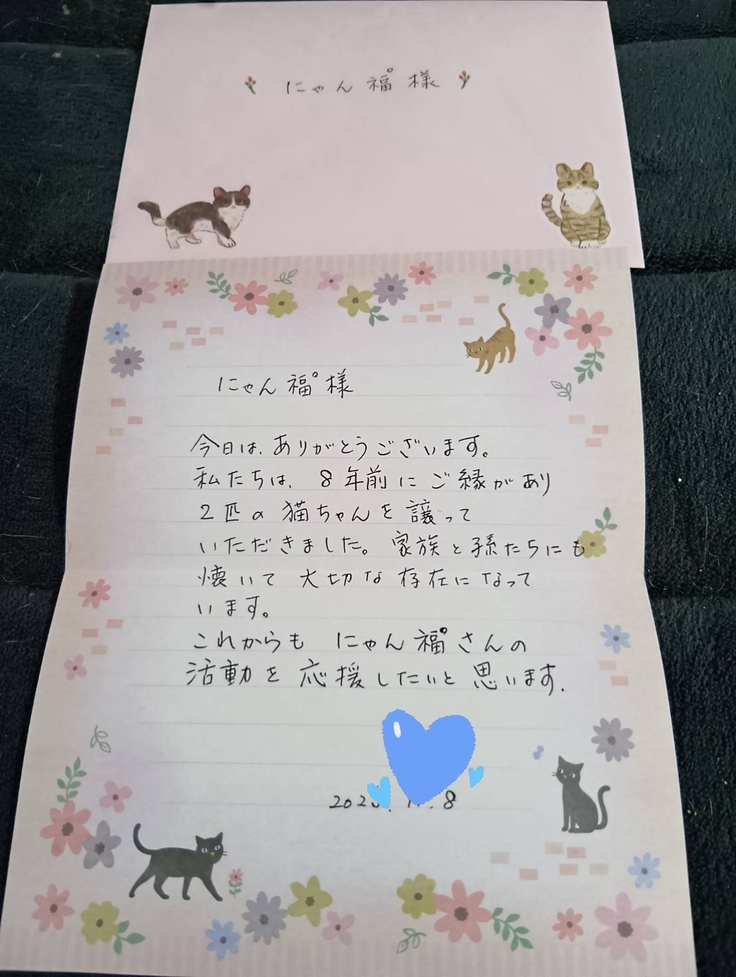 にゃん福゜様
にゃん福゜様
今日は、ありがとうございます。
私たちは、8年前にご縁があり
2匹の猫ちゃんを譲って
いただきました。家族と孫たちにも
懐いて大切な存在になって
います。
これからもにゃん福゜さんの
活動を応援したいと思います.